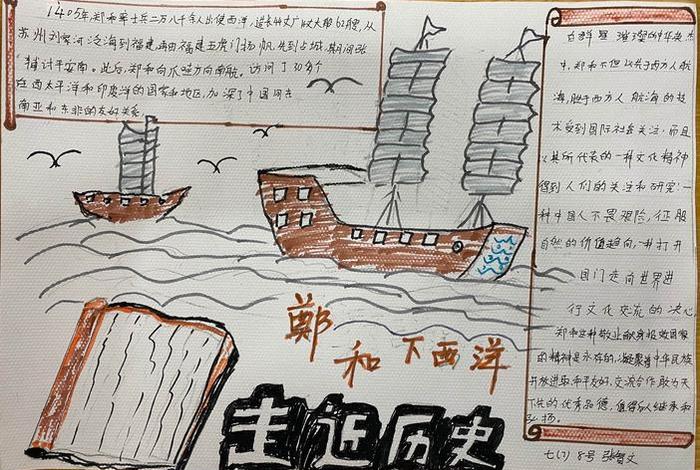 1405年郑和率士兵二万八千余人出使西洋,造长四丈广以丈大船62艘,从
苏州刘家河泛海到福建再由福建五虎门扬帆先到占城,
讨平安南。此后,郑和向爪哇方向南航。访问了30多个
在西太平洋和印度洋的国家和地区,加深了中国同东
南亚和东非的友好关系
在群星璀璨的中华杰
中,郑和不但以先于西方人航
海,胜于西方人航海的技
术受到国际社会关注,而且
以其所代表的一种文化精神
得到人们的关注和研究:一
种中国人不畏艰险,征服
自然的价值趋向,一种打开
国门走向世界进
行文化交流的决心
郑和这种敬业献身报效国家
的精神是永存的,凝聚着中华民族
开放进取和平友好,交流合作敢为天
下先的优秀品德,值得后人继承和
弘扬。
郑和下西洋
走近历史
七(7) 8号 张智文